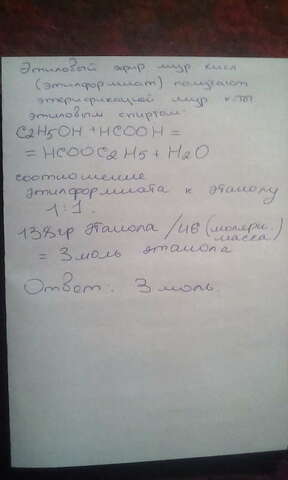 Этиловый эфир мур кисл
(этилформиат) получают
этерификацией мур к-ты
этиловым спиртом:
C2H5OH + HCOOH =
= HCOOC2H5 + H2O
соотношение
этилформиата к этанолу
1:1.
138гр этанола / 46 (молярн.
масса)
= 3 моль этанола
Ответ: 3 моль.